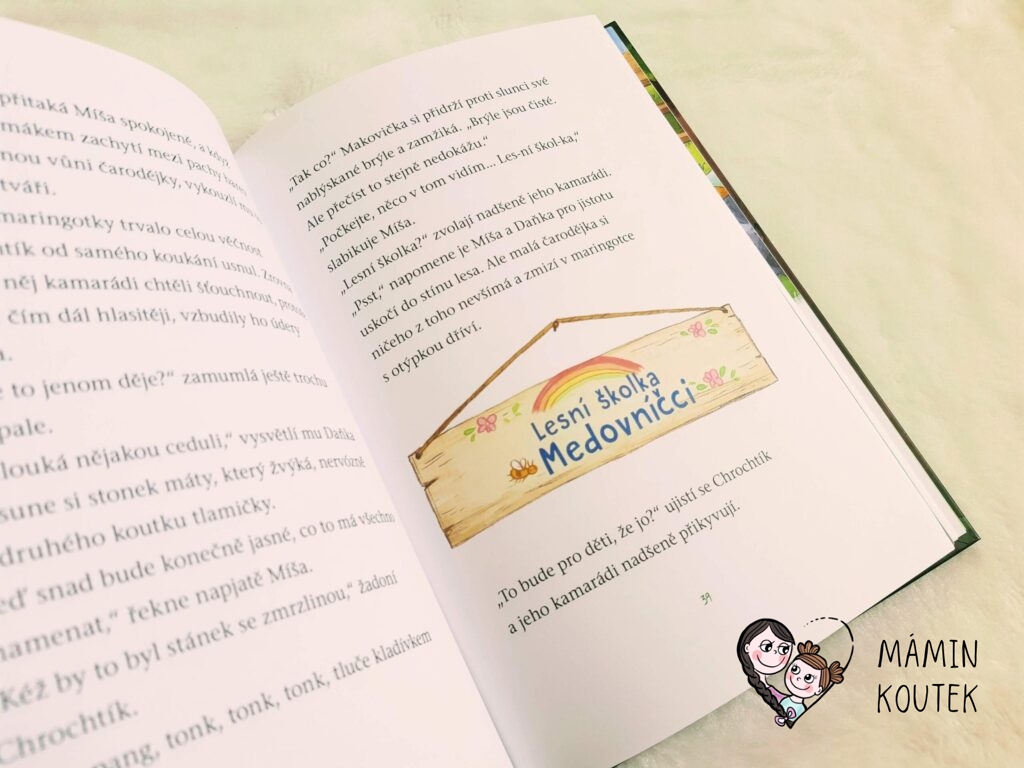 přitaká Míša spokojeně, a když
mákem zachytí mezi pachy
nou vůní čarodějky, vykouzlí mu
tváři.
maringotky trvalo celou věčnost
tík od samého koukání usnul. Zrovna
něj kamarádi chtěli šťouchnout,
čím dál hlasitěji, vzbudily ho údery
a.
to jenom děje?“ zamumlá ještě trochu
pale.
louká nějakou ceduli,“ vysvětlí mu Daňka
sune si stonek máty, který žvýká, nervózně
druhého koutku tlamičky.
eď snad bude konečně jasné, co to má všechno
namenat,“ řekne napjatě Míša.
Kéž by to byl stánek se zmrzlinou,“ žadoní
Chrochtík.
pang, tonk, tonk, tonk, tluče kladívkem
„Tak co?“ Makovička si přidrží proti slunci své
nablýskané brýle a zamžiká. „Brýle jsou čisté.
Ale přečíst to stejně nedokážu.“
„Počkejte, něco v tom vidím... Les-ní škol-ka,“
slabikuje Míša.
„Lesní školka?“ zvolají nadšeně jeho kamarádi.
„Psst,“ napomene je Míša a Daňka pro jistotu
uskočí do stínu lesa. Ale malá čarodějka si
ničeho z toho nevšímá a zmizí v maringotce
s otýpkou dříví.
Lesní školka
Medovníčci
„To bude pro děti, že jo?“ ujistí se Chrochtík
a jeho kamarádi nadšeně přikyvují.
39
MÁMIN
KOUTEK